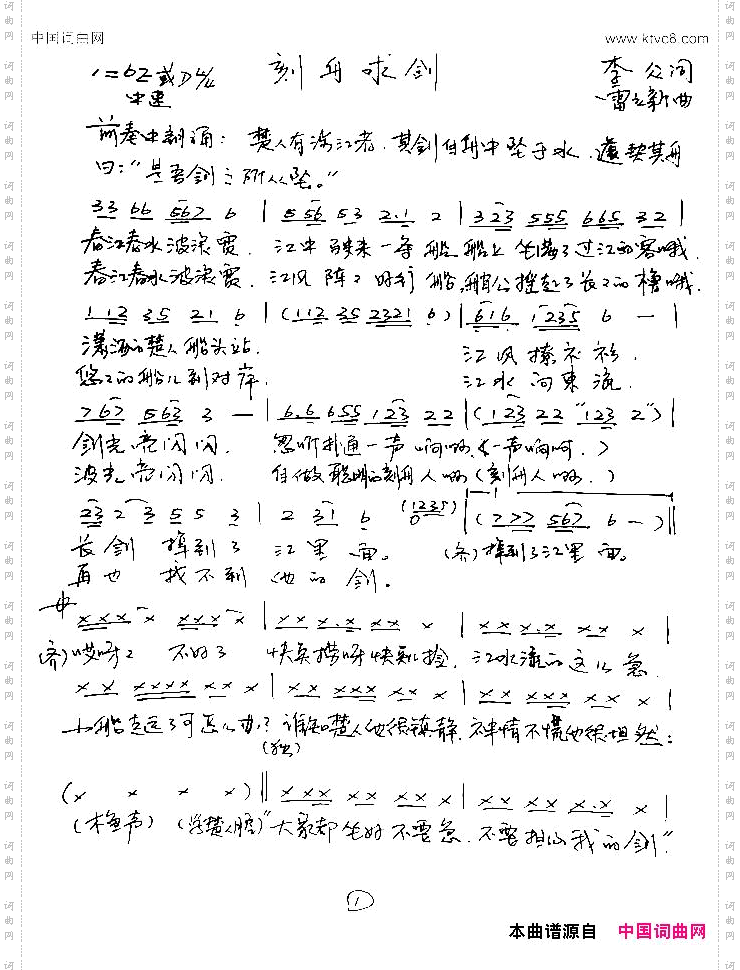 中国词曲网 www.ktvc8.com
刻舟求剑
1=bE或D 4/4 李众词
中速 雷之新曲
前奏中朗诵：楚人有涉江者，其剑自舟中坠于水，遽契其舟
曰：“是吾剑之所从坠。”
33 66 567 6 | 5 56 53 2.1 2 | 3 23 555 665 32 |
春江春水波浪宽，江中驶来一条船，船上坐着了过江的客哦，
春江春水波浪宽，江风阵阵好行船，艄公摇起了长长的橹哦，
1 12 35 21 6 | (112 35 2321 6) | 616 1235 6 — |
潇洒的楚人船头站， 江风撩衣衫，
悠悠的船儿到对岸， 江水向东流，
767 563 3 — | 6.6 655 123 22 | (123 22 "123 2") |
剑光亮闪闪， 忽听扑通一声响啊，(一声响啊，)
波光亮闪闪， 自做聪明的刻舟人啊(刻舟人啊，)
23 2 3 5 5 3 | 2 31 6 (1235) 0 | (777 567 6 —) ||
长剑掉到了江里面。 (齐)掉到了江里面。
再也找不到他的剑。
xxx x xxx x | xx x.x xx x | xx x.x xx x |
(齐)哎呀呀 不好了 快点捞呀快点捡，江水流的这么急
xx xxxx xx x | xx xxx xx x | xx xxx xx x |
小船走远了可怎么办？谁知楚人他很镇静，神情不慌他很坦然：
(独)
(x x x x) || xxx xx xx x | xx xx x.x x |
(木鱼声) (学楚人腔)“大家都坐好不要急，不要担心我的剑”
1
本曲谱源自 中国词曲网